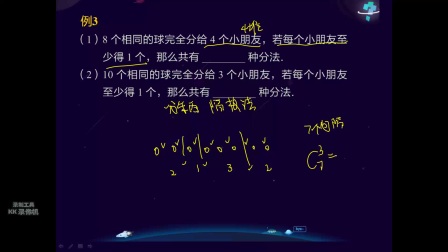 例3
4堆
(1) 8个相同的球完全分给4个小朋友，若每个小朋友至
少得1个，那么共有______种分法.
(2) 10个相同的球完全分给3个小朋友，若每个小朋友
至少得1个，那么共有______种分法.
隔板法
7个间隙
C₇³ =
2 1 3 2
录制工具
KK录像机